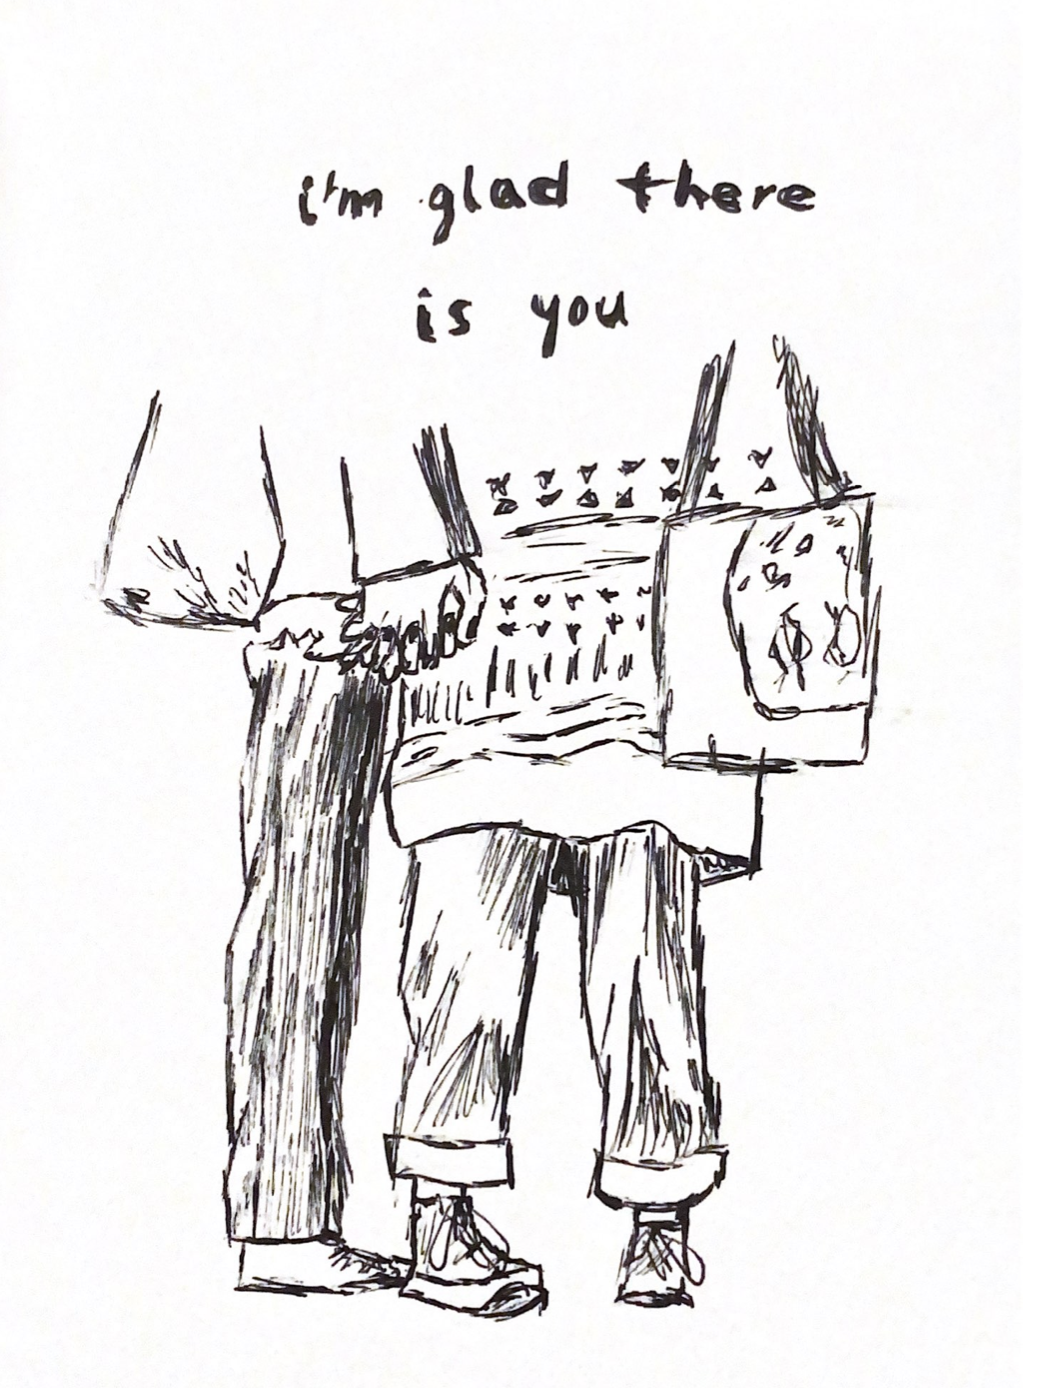 i'm glad there
is you